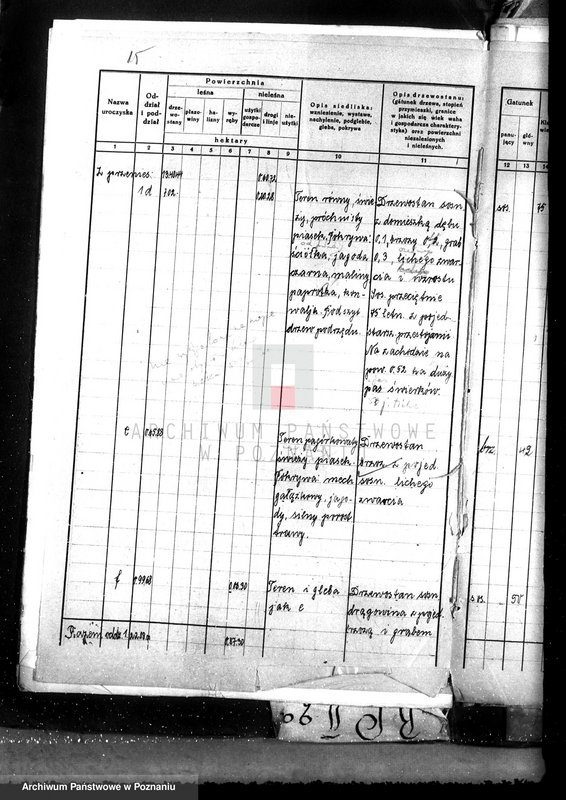 15
Powierzchnia
leśna
nieleśna
Nazwa uroczyska
Oddział i poddział
drzewostany
płazowiny
halizny
wyręby
użytki gospodarcze
drogi i linje
nieużytki
hektary
Opis siedliska: wzniesienie, wystawa, nachylenie, podglebie, gleba, pokrywa
Opis drzewostanu: (gatunek drzewa, stopień przymieszki, granice w jakich się wiek waha i gospodarcza charakterystyka) oraz powierzchni niezalesionych i nieleśnych.
Gatunek
panujący
główny
1 2 3 4 5 6 7 8 9 10 11 12 13 14
Z przenies.
1 d
7.02
Teren równy, świe
ży, próchnisty
piasek. Pokrywa:
ściółka, jagoda
czarna, maliny
paprotka, kon-
walja. Podszyt
drzew podrzędn.
Drzewostan sosn
z domieszką dębu
0,1, brzozy 0,2, grab
0,3, lichego zwar-
cia i wzrostu
Sos. przeciętnie
75 letn. z pojed
starsz. przestojami
Na zachodzie na
pow. 0.52 ha duży
pas świerków.
sos.
75
e
Teren pagórkowaty
świeży piasek.
Pokrywa: mech
gałązkowy, jago-
dy, silny porost
trawy.
Drzewostan
brzoz. z pojed.
sosn. lichego
zwarcia
brz.
42
f
0.99.68
0.09.30
Teren i gleba
jak e
Drzewostan sosn
drągowina z pojed.
brzozą i grabem
sos.
58
Razem oddz. 1
0.87.30
ARCHIWUM PAŃSTWOWE
W POZNANIU
Archiwum Państwowe w Poznaniu